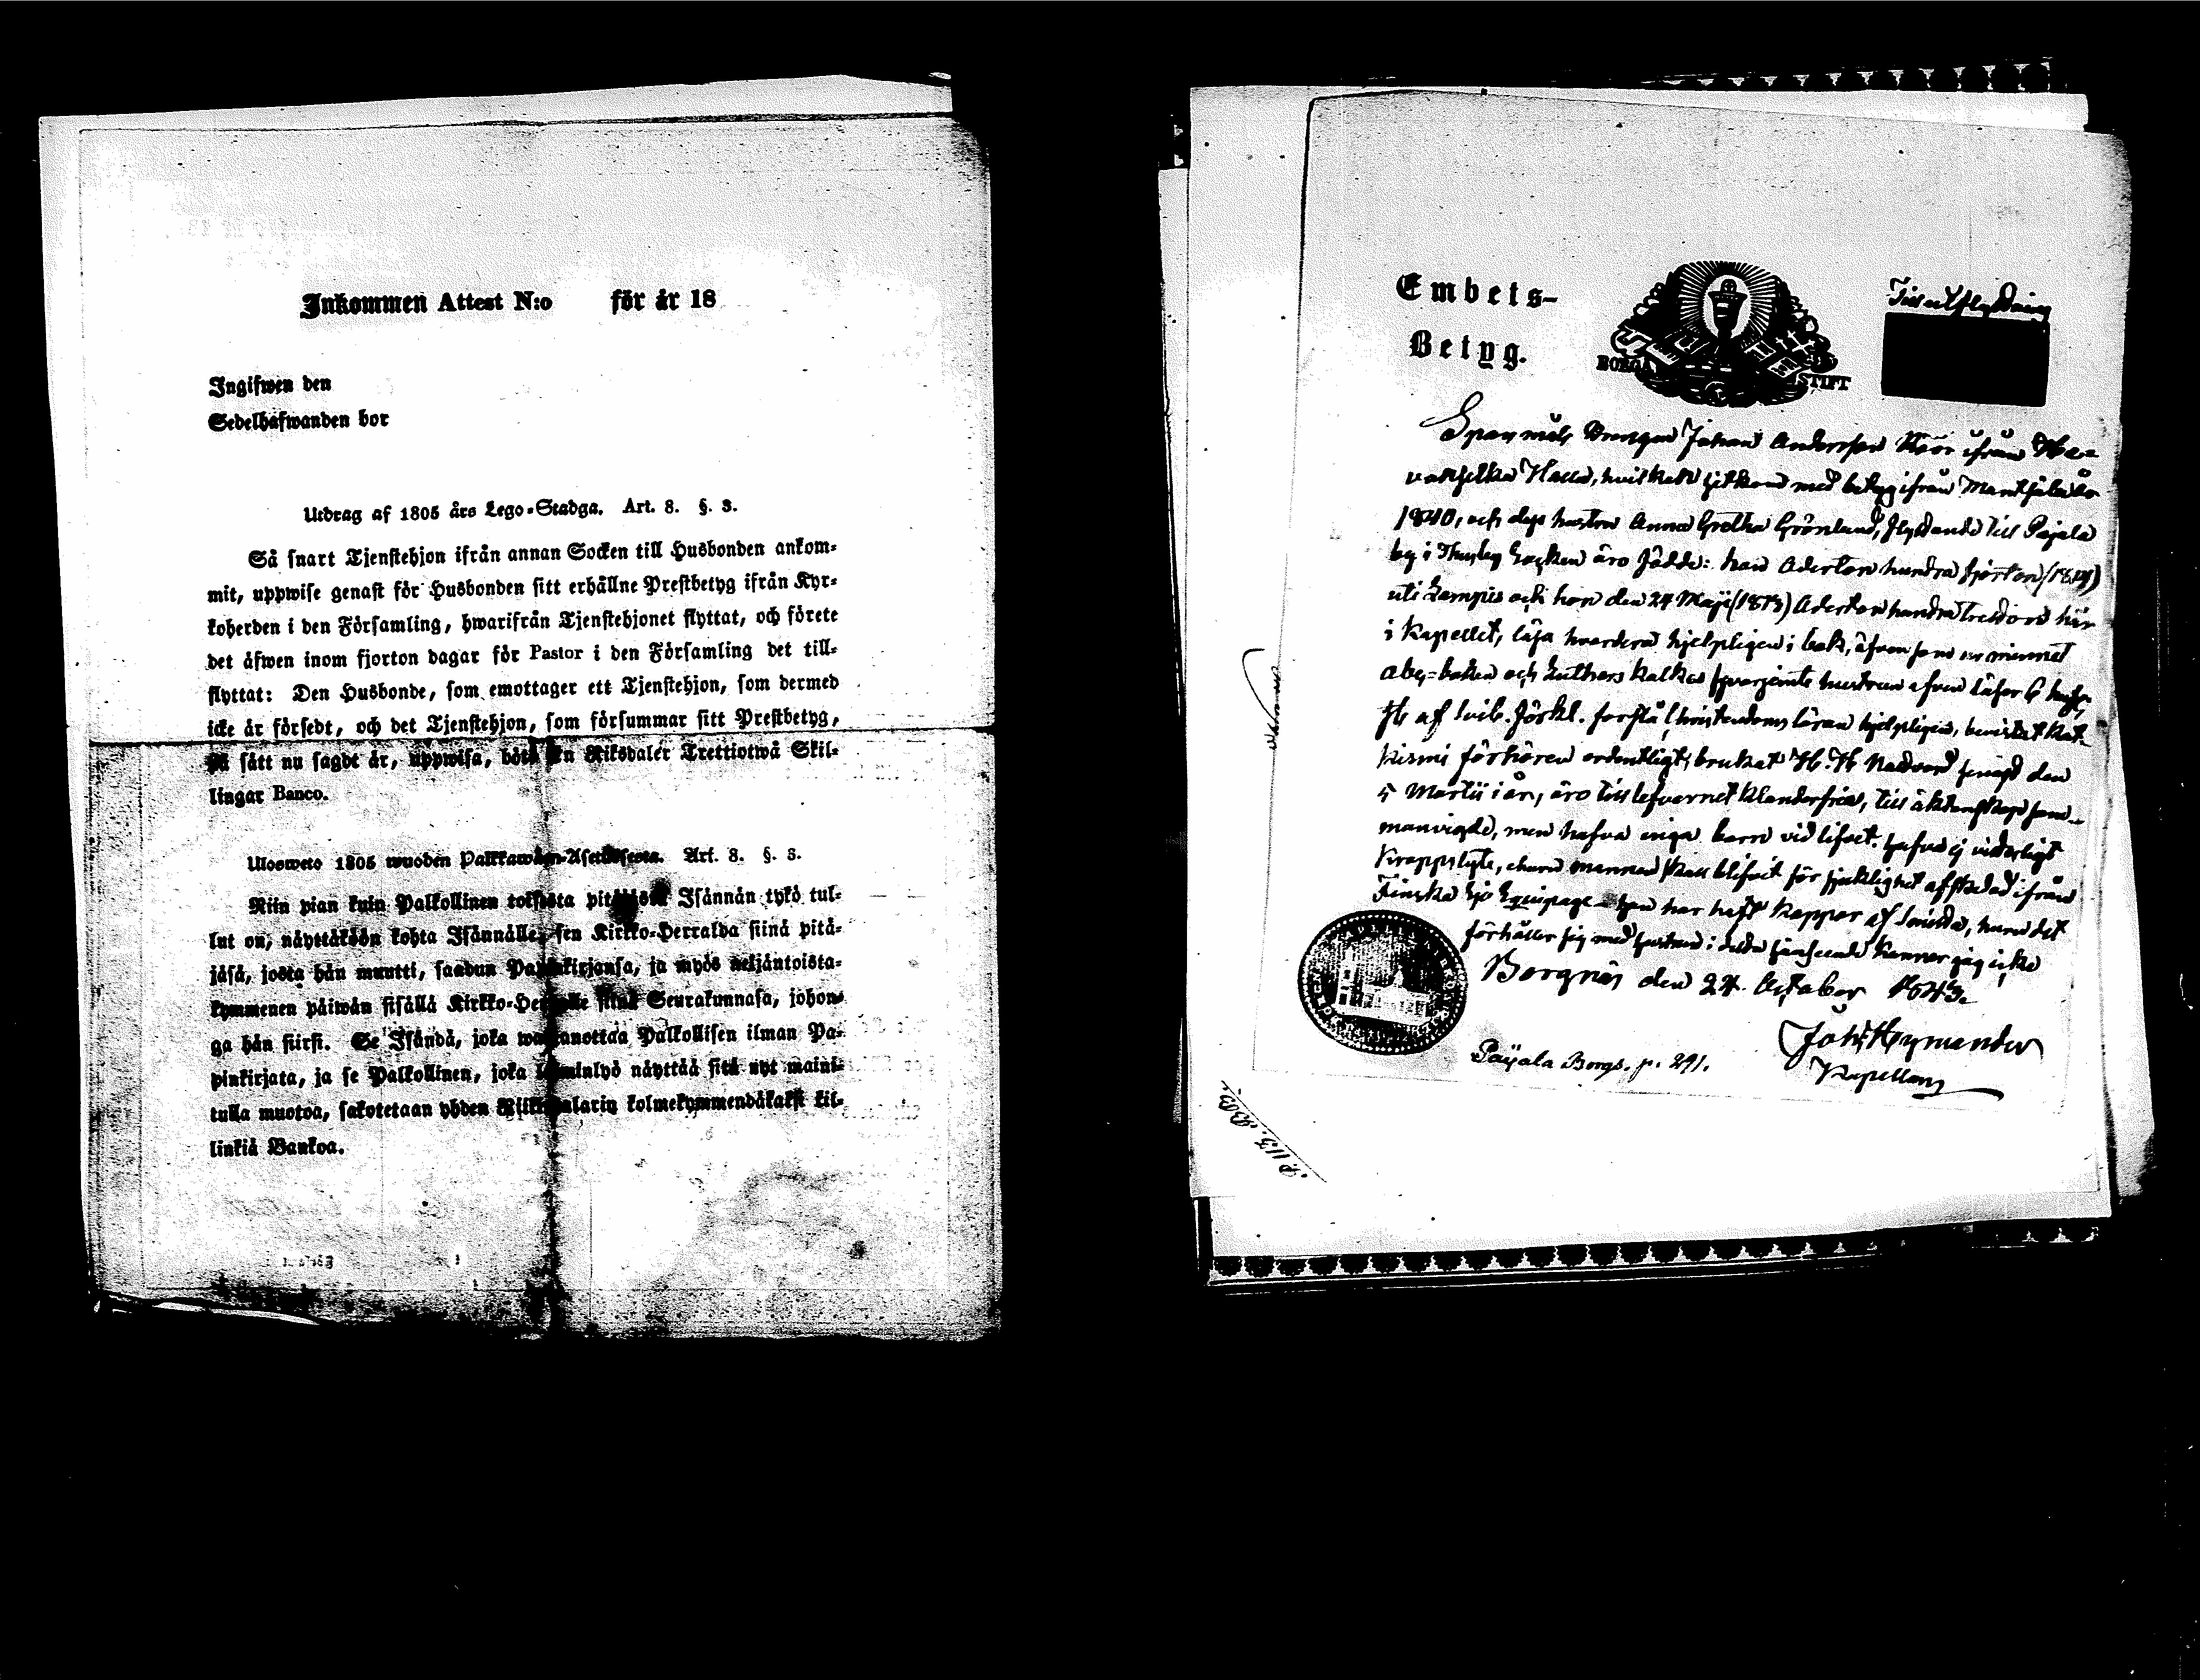 Inkommen Attest N:o för år 18
Ingifwen den
Sedelhafwanden bor
Utdrag af 1805 års Lego-Stadga. Art. 8. §. 3.
Så snart Tjenstehjon ifrån annan Socken till Husbonden ankom-
mit, uppwise genast för Husbonden sitt erhållne Prestbetyg ifrån Kyr-
koherden i den Församling, hwarifrån Tjenstehjonet flyttat, och förete
det äfwen inom fjorton dagar för Pastor i den Församling det till-
flyttat: Den Husbonde, som emottager ett Tjenstehjon, som dermed
icke är försedt, och det Tjenstehjon, som försummar sitt Prestbetyg,
på sätt nu sagdt är, uppwisa, böte En Riksdaler Trettiotwå Skil-
lingar Banco.
Ulosweto 1805 wuoden Palkkawäen-Asetuksesta. Art. 8. §. 3.
Niin pian kuin Palkollinen toisesta pitäjästä Isännän tykö tul-
lut on, näyttäköön kohta Isännälle, sen Kirkko-Herralda siinä pitä-
jäsä, josta hän muutti, saadun Papinkirjansa, ja myös neljäntoista-
kymmenen päiwän sisällä Kirkko-Herralle siinä Seurakunnasa, johon-
ga hän siirsi. Se Isändä, joka wastanottaa Palkollisen ilman Pa-
pinkirjata, ja se Palkollinen, joka laiminlyö näyttää sitä nyt maini-
tulla muotoa, sakotetaan yhden Riikintalarin kolmekymmendäkaksi kil-
linkiä Bankoa.
Embets-
Betyg.
BORGÅ STIFT
Till utflyttning
Johan Andersson ifrån
med betyg ifrån
1840, och dess hustru Anna Gretha Grönlund, flyttande till Pajala
by i Socken äro födde: han Adertonhundra fjorton (1814)
och hon den 24 Maji (1813) Adertonhundra tretton här
i Kapellet, läsa hvardera hjelpligen i bok, äfven som ur minnet
abc-boken och Luthers hustrun äfven läser 6
af Svib. förkl. förstå Christendoms läran hjelpligen, bevistat Kat-
kismi förhören ordentligt, brukat H. H. Nattvard senast den
5 Martii i år, äro till lefvernet klanderfria, till äktenskap sam-
manvigde, men hafva inga barn vid lifvet. hafva ej
Kroppslyte, ehuru mannen skall blifvit för sjuklighet afskedad ifrån
Finska Sjö Equipage han har haft Koppor af huru det
förhåller sig med hustrun i detta hänseende känner jag icke
den 24. October 1843.
Joh: Hymander
Kapellan
Pajala Borgs. p. 291.